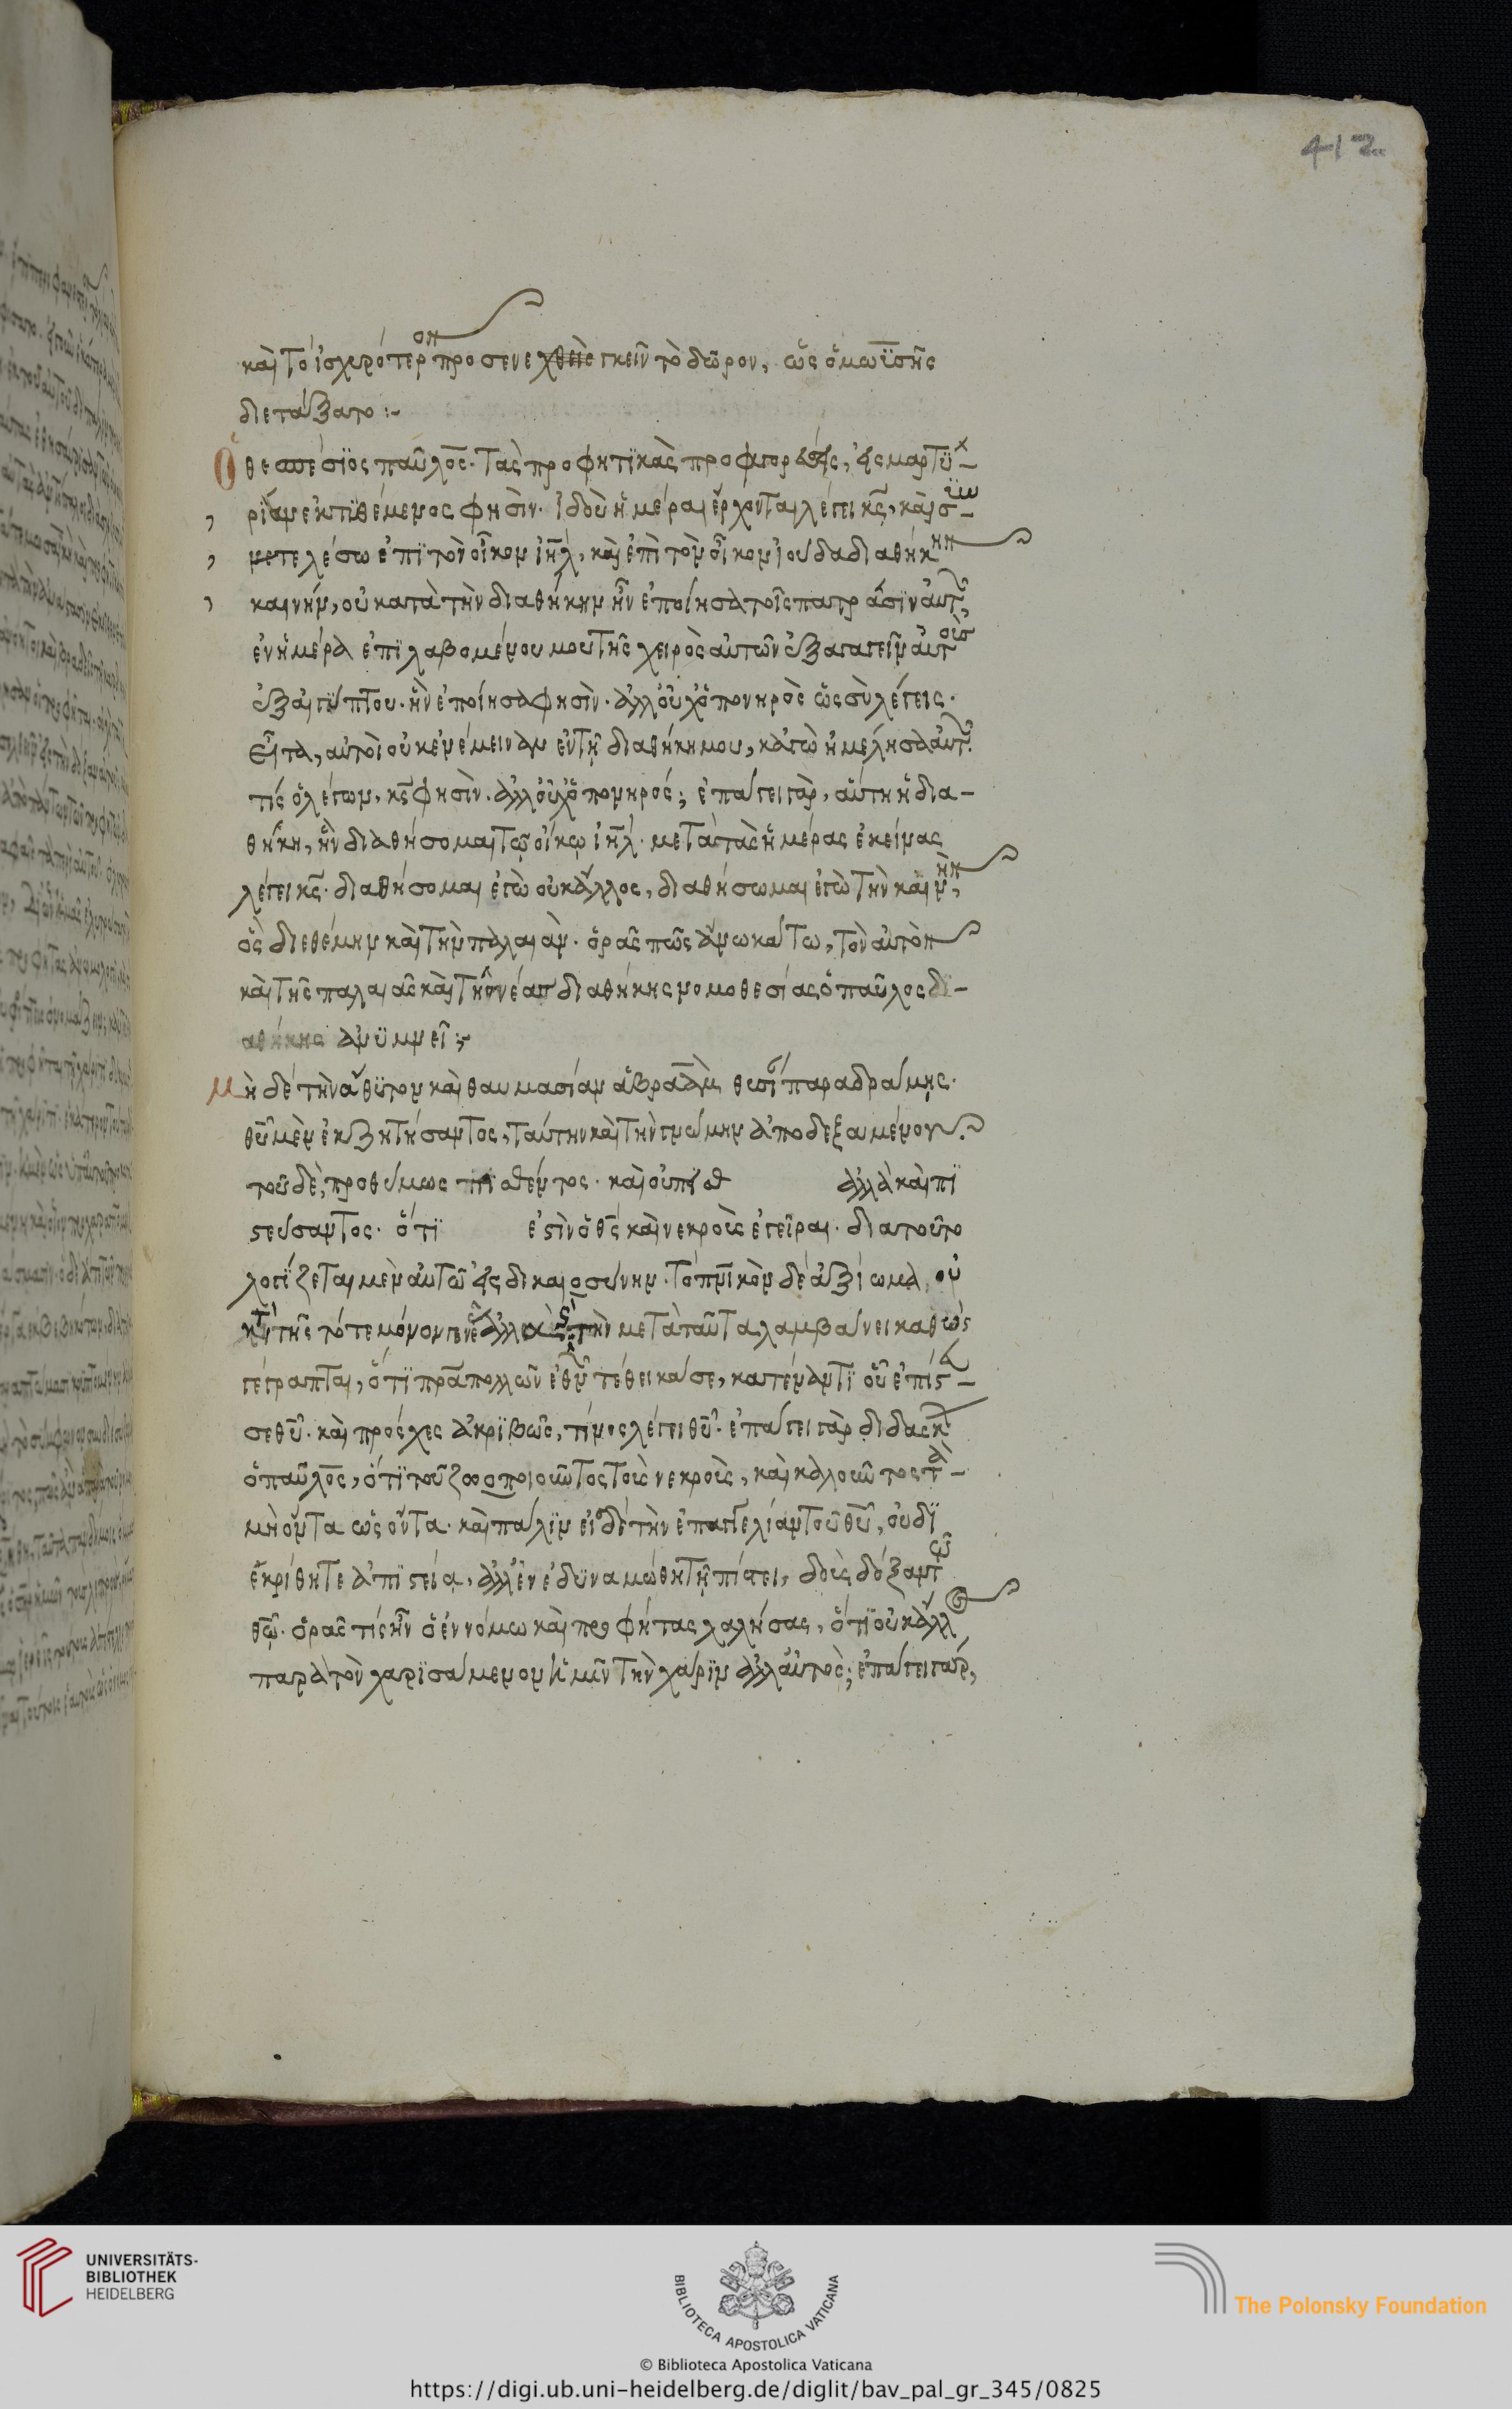 412
καὶ τὸ ἰσχυρότερον προσενεχθεὶεγκεῖν τὸ δῶρον, ὡς ὁ μωϋσῆς
διετάξατο :-
Ὁ θεσπέσϊος παῦλος. τὰς προφητϊκὰς προφορὰς, εἰς μαρτϋ-
ρίαν ἐκτϊθέμενος φησὶν. ἰδοὺ ἡμέραι ἔρχονται λέγει κς, καὶ σ-
ϋντελέσω ἐπϊ τὸν οἶκον ιηλ, καὶ ἐπὶ τὸν οἶκον ἰούδα διαθήκην
καινὴν, οὐ κατὰ τὴν διαθήκην ἣν ἐποίησα τοῖς πατράσϊν αὐτ
ἐν ἡμέρα ἐπϊλαβομένου μου τῆς χειρὸς αὐτῶν ἐξαγαγεῖν αὐτοὺς
ἐξ αἰγύπτου. ἣν ἐποίησα φησὶν. ἀλλ' οὐχ' ὁ πονηρὸς ὡς σὺ λέγεις.
εἶτα, αὐτοὶ οὐκ ἐνέμειναν ἐν τῇ διαθήκη μου, κἀγὼ ἠμέλησα αὐτ.
τίς ὁ λέγων, κς φησὶν. ἀλλ' οὐχ' ὁ πονηρός; ἐπάγει γὰρ, αὕτη ἡ δια-
θήκη, ἣν διαθήσομαι τῷ οἴκῳ ιηλ. μετὰ τὰς ἡμέρας ἐκείνας
λέγει κς. διαθήσομαι ἐγὼ οὐκ ἄλλος, διαθήσωμαι ἐγὼ τὴν καινὴν,
ὃς διεθέμην καὶ τὴν παλαιάν. ὁρᾶς πῶς ἄνω κάτω, τὸν αὐτὸν
καὶ τῆς παλαιᾶς καὶ τῆς νέας διαθήκης νομοθεσίας ὁ παῦλος δϊ-
αθήκης ἀνϋμνεῖ :-
Μὴ δὲ τὴν ἄθϋτον καὶ θαυμασίαν ἀβραὰμ θυσΐ παραδράμης.
θῦ μὲν ἐκζητήσαντος, ταύτην καὶ τὴν γνώμην ἀποδεξαμένου.
τοῦ δὲ, προθύμως πϊσθέντος. καὶ οὐ πϊσθ ἀλλὰ καὶ πϊ
στεύσαντος. ὅτϊ ἐστὶν ὁ θς καὶ νεκροὺς ἐγεῖραι. διατοῦτο
λογίζεται μὲν αὐτῶ εἰς δικαιοσύνην. τὸ πνικὸν δὲ ἀξίωμα, οὐ
τότε μόνον ἀλλὰ μετὰ ταῦτα λαμβάνει καθὼς
γέγραπται, ὅτϊ πρα πολλῶν ἐθν τέθεικά σε, κατέναντϊ οὗ ἐπίστ-
σε θῦ. καὶ πρόσχες ἀκρϊβῶς, τίνος λέγει θῦ. ἐπάγει γὰρ διδάσκ
ὁ παῦλος, ὅτϊ τοῦ ζωοποιοῦντος τοὺς νεκροὺς, καὶ καλοῦντος τὰ-
μὴ ὄντα ὡς ὄντα. καὶ πάλϊν εἰ δὲ τὴν ἐπαγγελίαν τοῦ θῦ, οὐ δϊ
εκρίθητε ἀπϊστεία, ἀλλ' ἐνεδϋναμώθη τῇ πίστει, δοὺς δόξαν τῶ
θῶ. ὁρᾶς τίς ἦν ὁ ἐν νόμω καὶ προφήτας λαλήσας, ὅτϊ οὐκ ἄλλος
παρὰ τὸν χαρϊσάμενον ἡμῖν τὴν χάρϊν ἀλλ' αὐτὸς; ἐπάγει γὰρ,
UNIVERSITÄTS-
BIBLIOTHEK
HEIDELBERG
BIBLIOTECA APOSTOLICA VATICANA
The Polonsky Foundation
© Biblioteca Apostolica Vaticana
https://digi.ub.uni-heidelberg.de/diglit/bav_pal_gr_345/0825